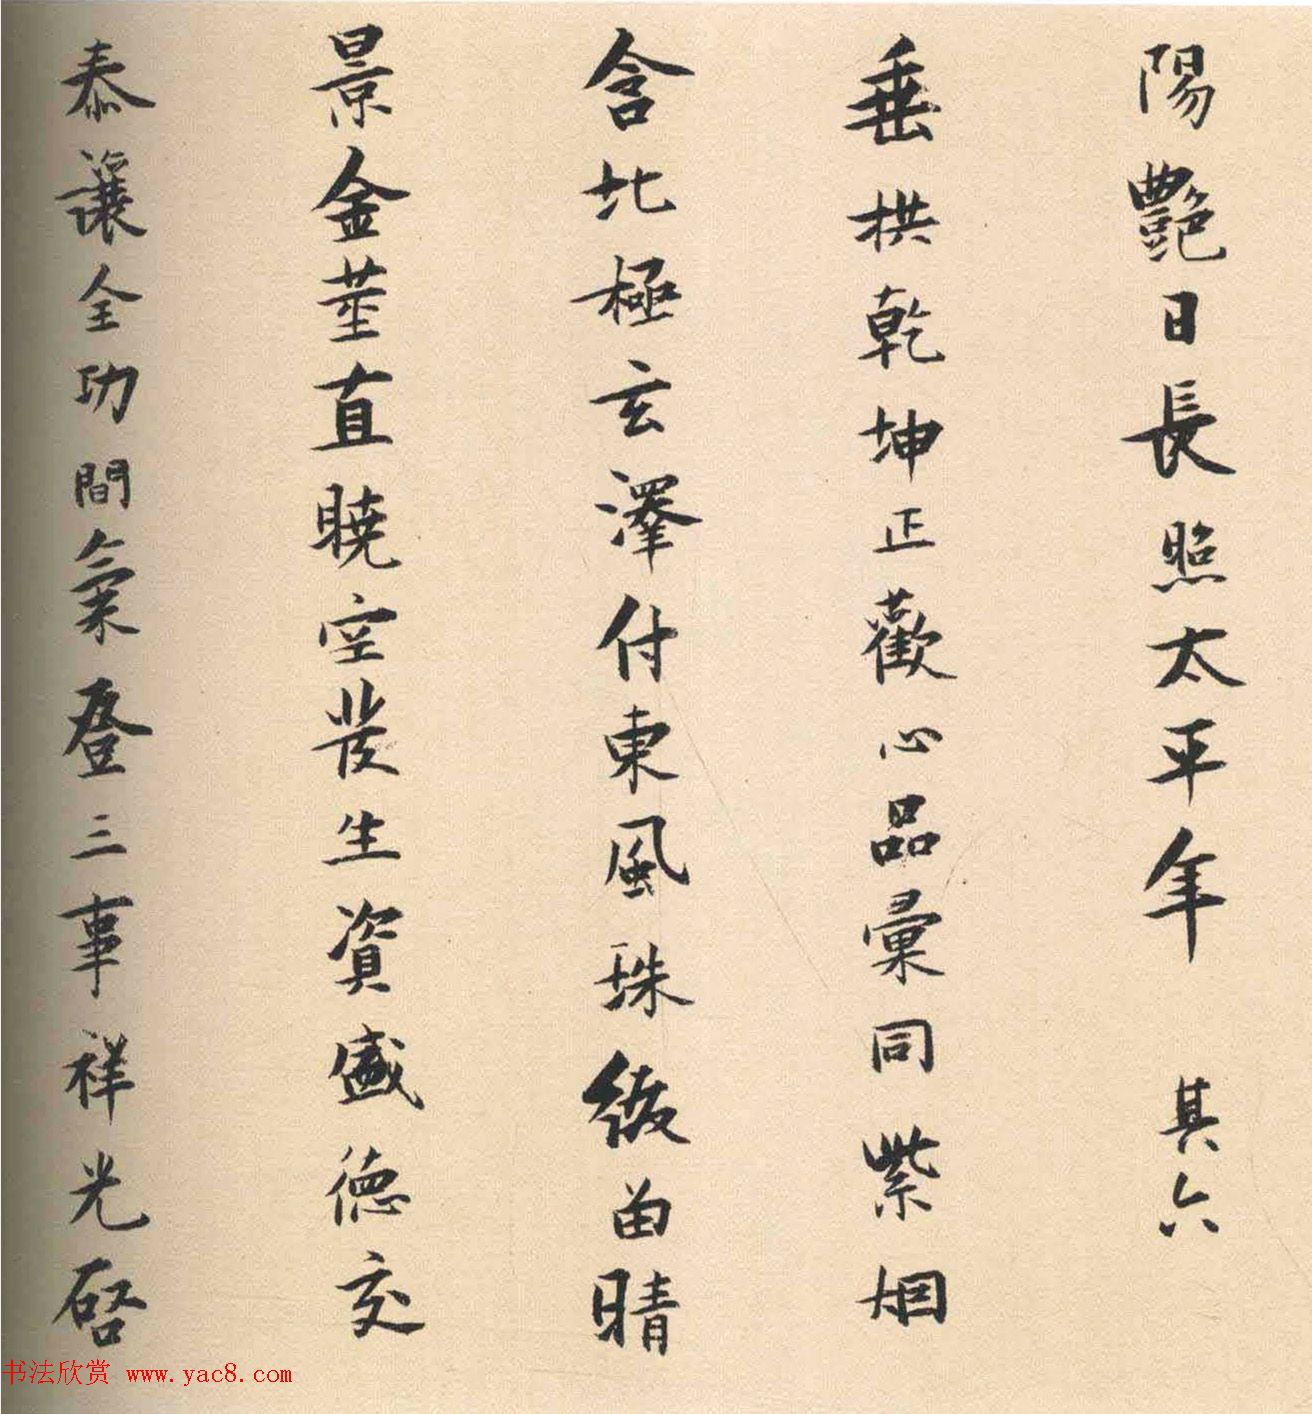 陽艶日長照太平年 其六
垂拱乾坤正歡心品彙同紫烟
含北極玄澤付東風珠綴留晴
景金莖直曉空發生資盛德交
泰讓全功間氣登三事祥光啓
书法欣赏 www.yac8.com